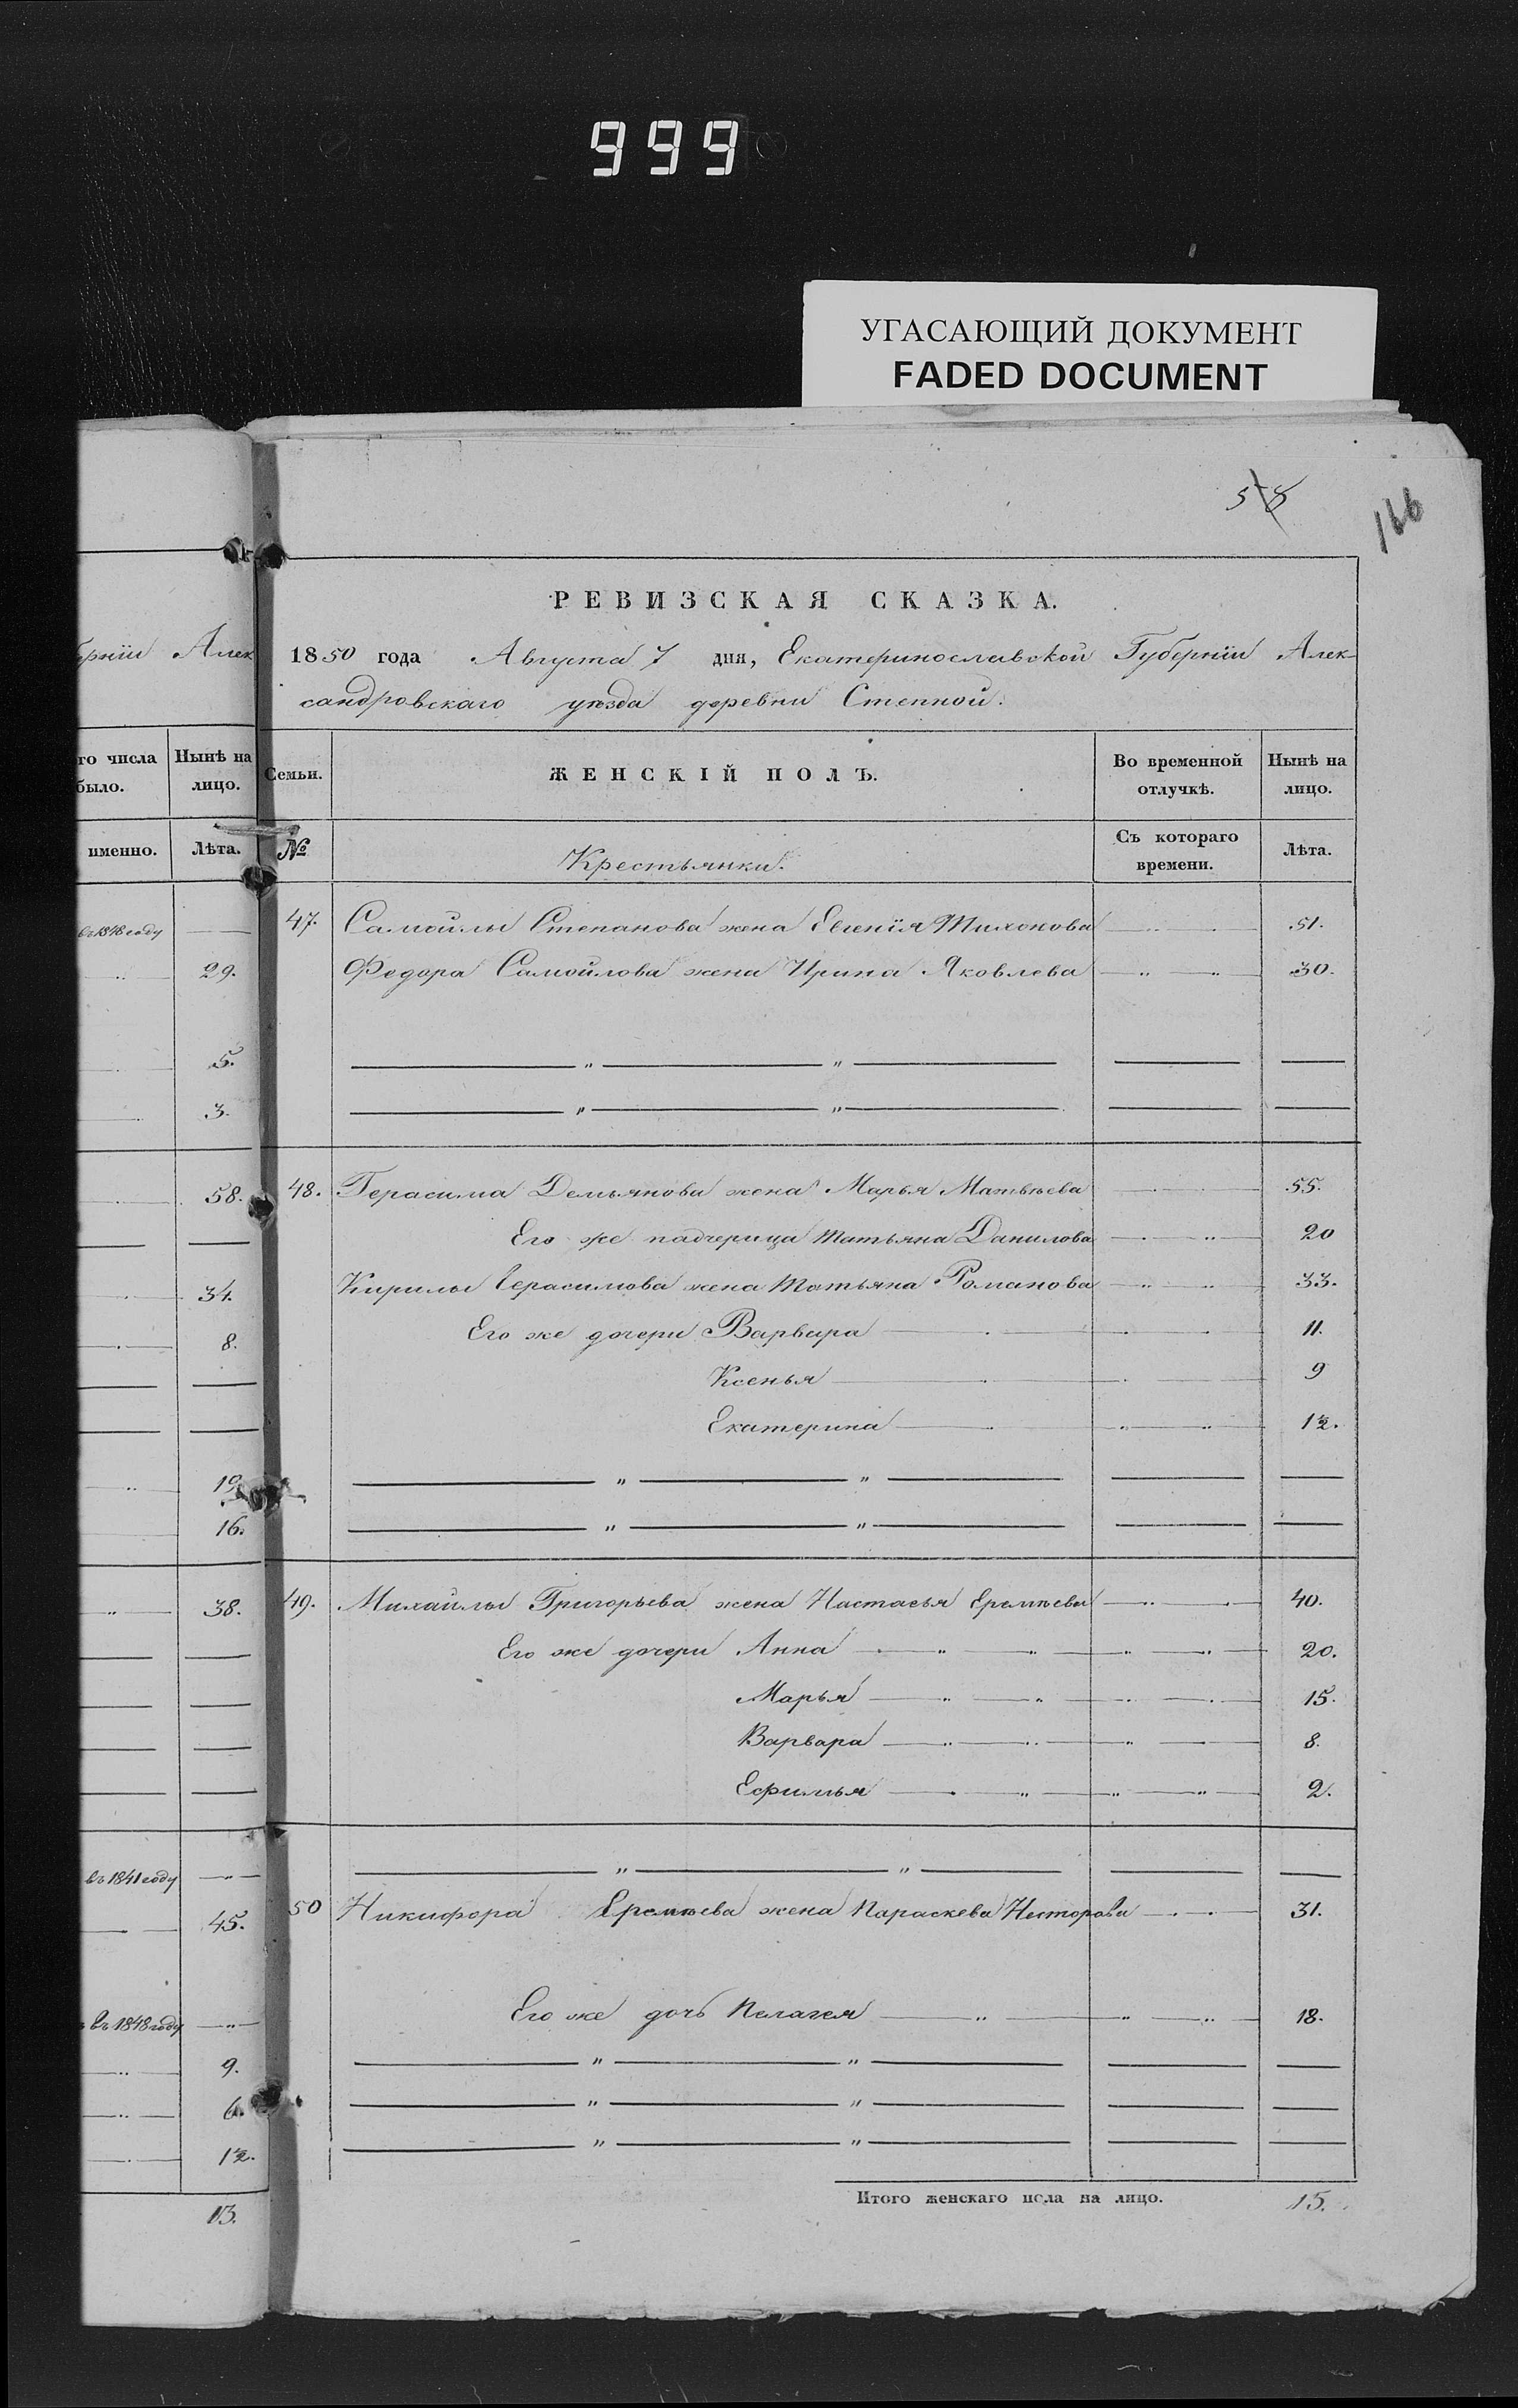 999
УГАСАЮЩИЙ ДОКУМЕНТ
FADED DOCUMENT
58
166
рніи Алек
го числа было.
Нынѣ на лицо.
именно.
Лѣта.
въ 1848 году
29.
5.
3.
58.
34.
8.
19.
16.
38.
въ 1841 году
45.
въ 1848 году
9.
6.
1½.
13.
РЕВИЗСКАЯ СКАЗКА.
1850 года Августа 7 дня, Екатеринославской Губерніи Алек-
сандровскаго уѣзда деревни Степной.
Семьи.
ЖЕНСКІЙ ПОЛЪ.
Во временной отлучкѣ.
Нынѣ на лицо.
№
Крестьянки.
Съ котораго времени.
Лѣта.
47. Самойлы Степанова жена Евгенія Тихонова 51.
Федора Самойлова жена Ирина Яковлева 30.
48. Герасима Демьянова жена Марья Матвѣева 55.
Его же падчерица Татьяна Данилова 20
Кирилы Герасимова жена Татьяна Романова 33.
Его же дочери Варвара 11.
Ксенья 9
Екатерина 1½.
49. Михайлы Григорьева жена Настасья Еремѣева 40.
Его же дочери Анна 20.
Марья 15.
Варвара 8.
Ефимья 2.
50 Никифора Еремѣева жена Параскева Несторова 31.
Его же дочь Пелагея 18.
Итого женскаго пола на лицо. 15.